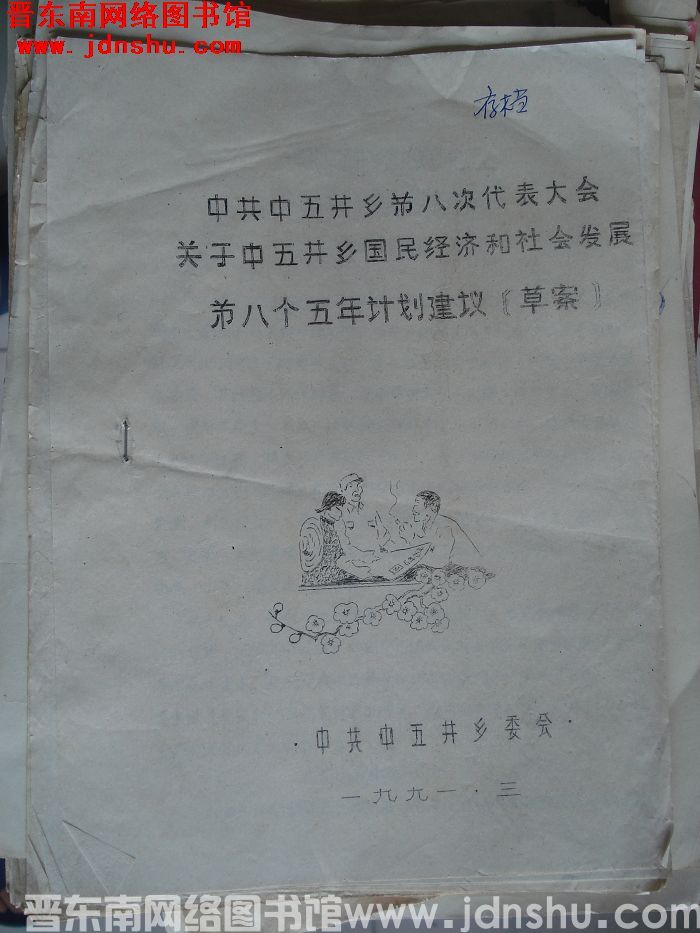 晋东南网络图书馆
www.jdnshu.com
存档
中共中五井乡第八次代表大会
关于中五井乡国民经济和社会发展
第八个五年计划建议〔草案〕
·中共中五井乡委会·
一九九一·三
晋东南网络图书馆www.jdnshu.com